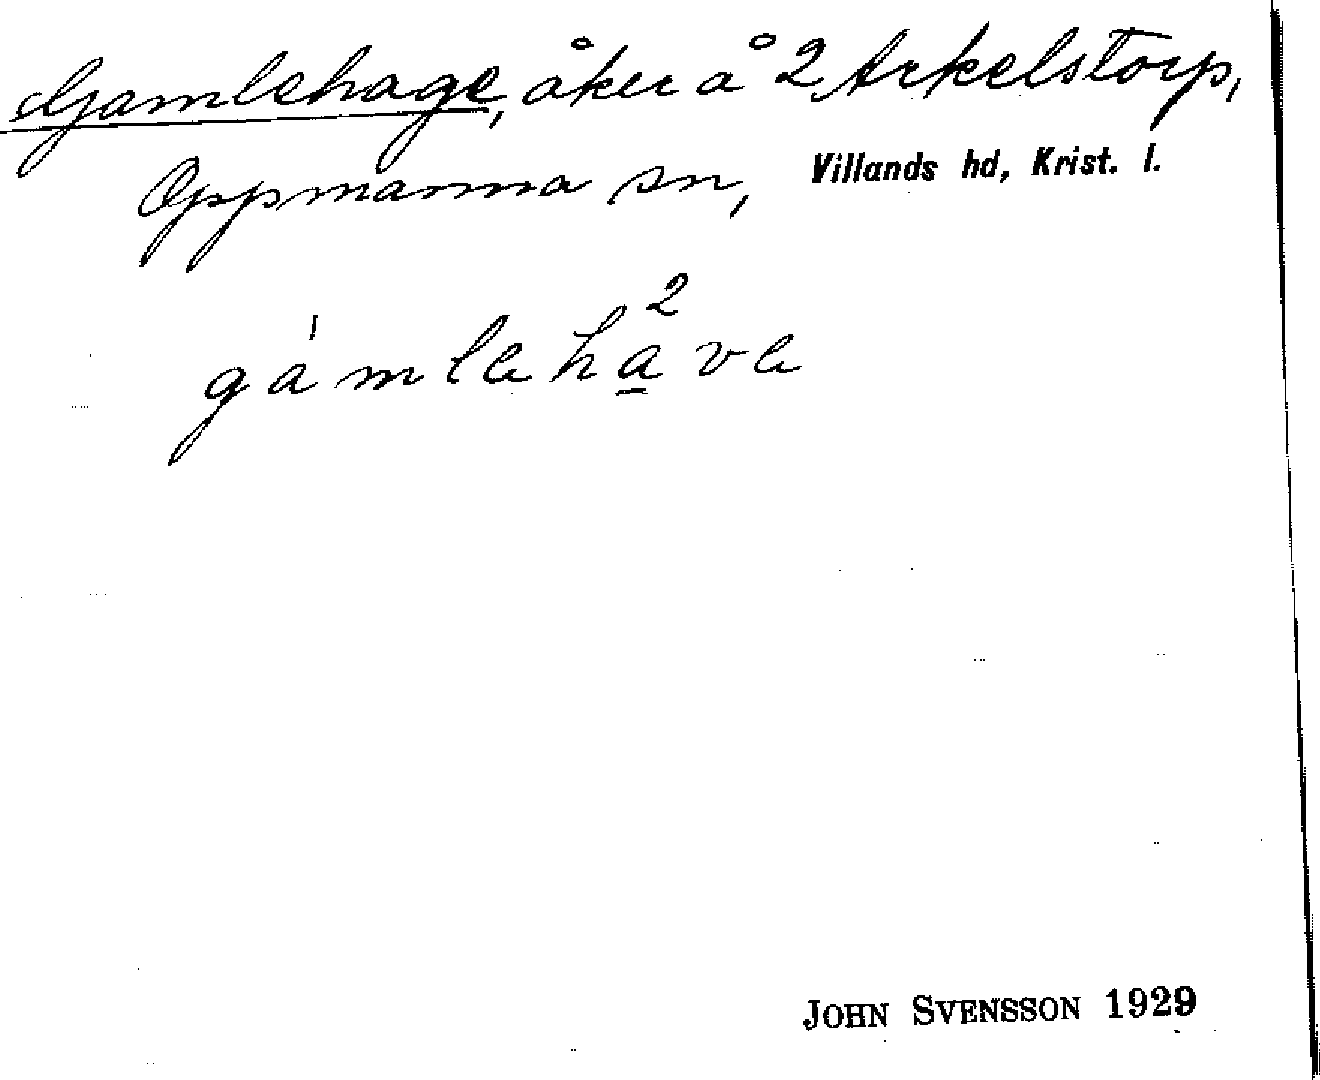 Gamlehage, åker å 2 Arkelstorp,
Oppmanna sn, Villands hd, Krist. l.
gámleha̲²ve
JOHN SVENSSON 1929